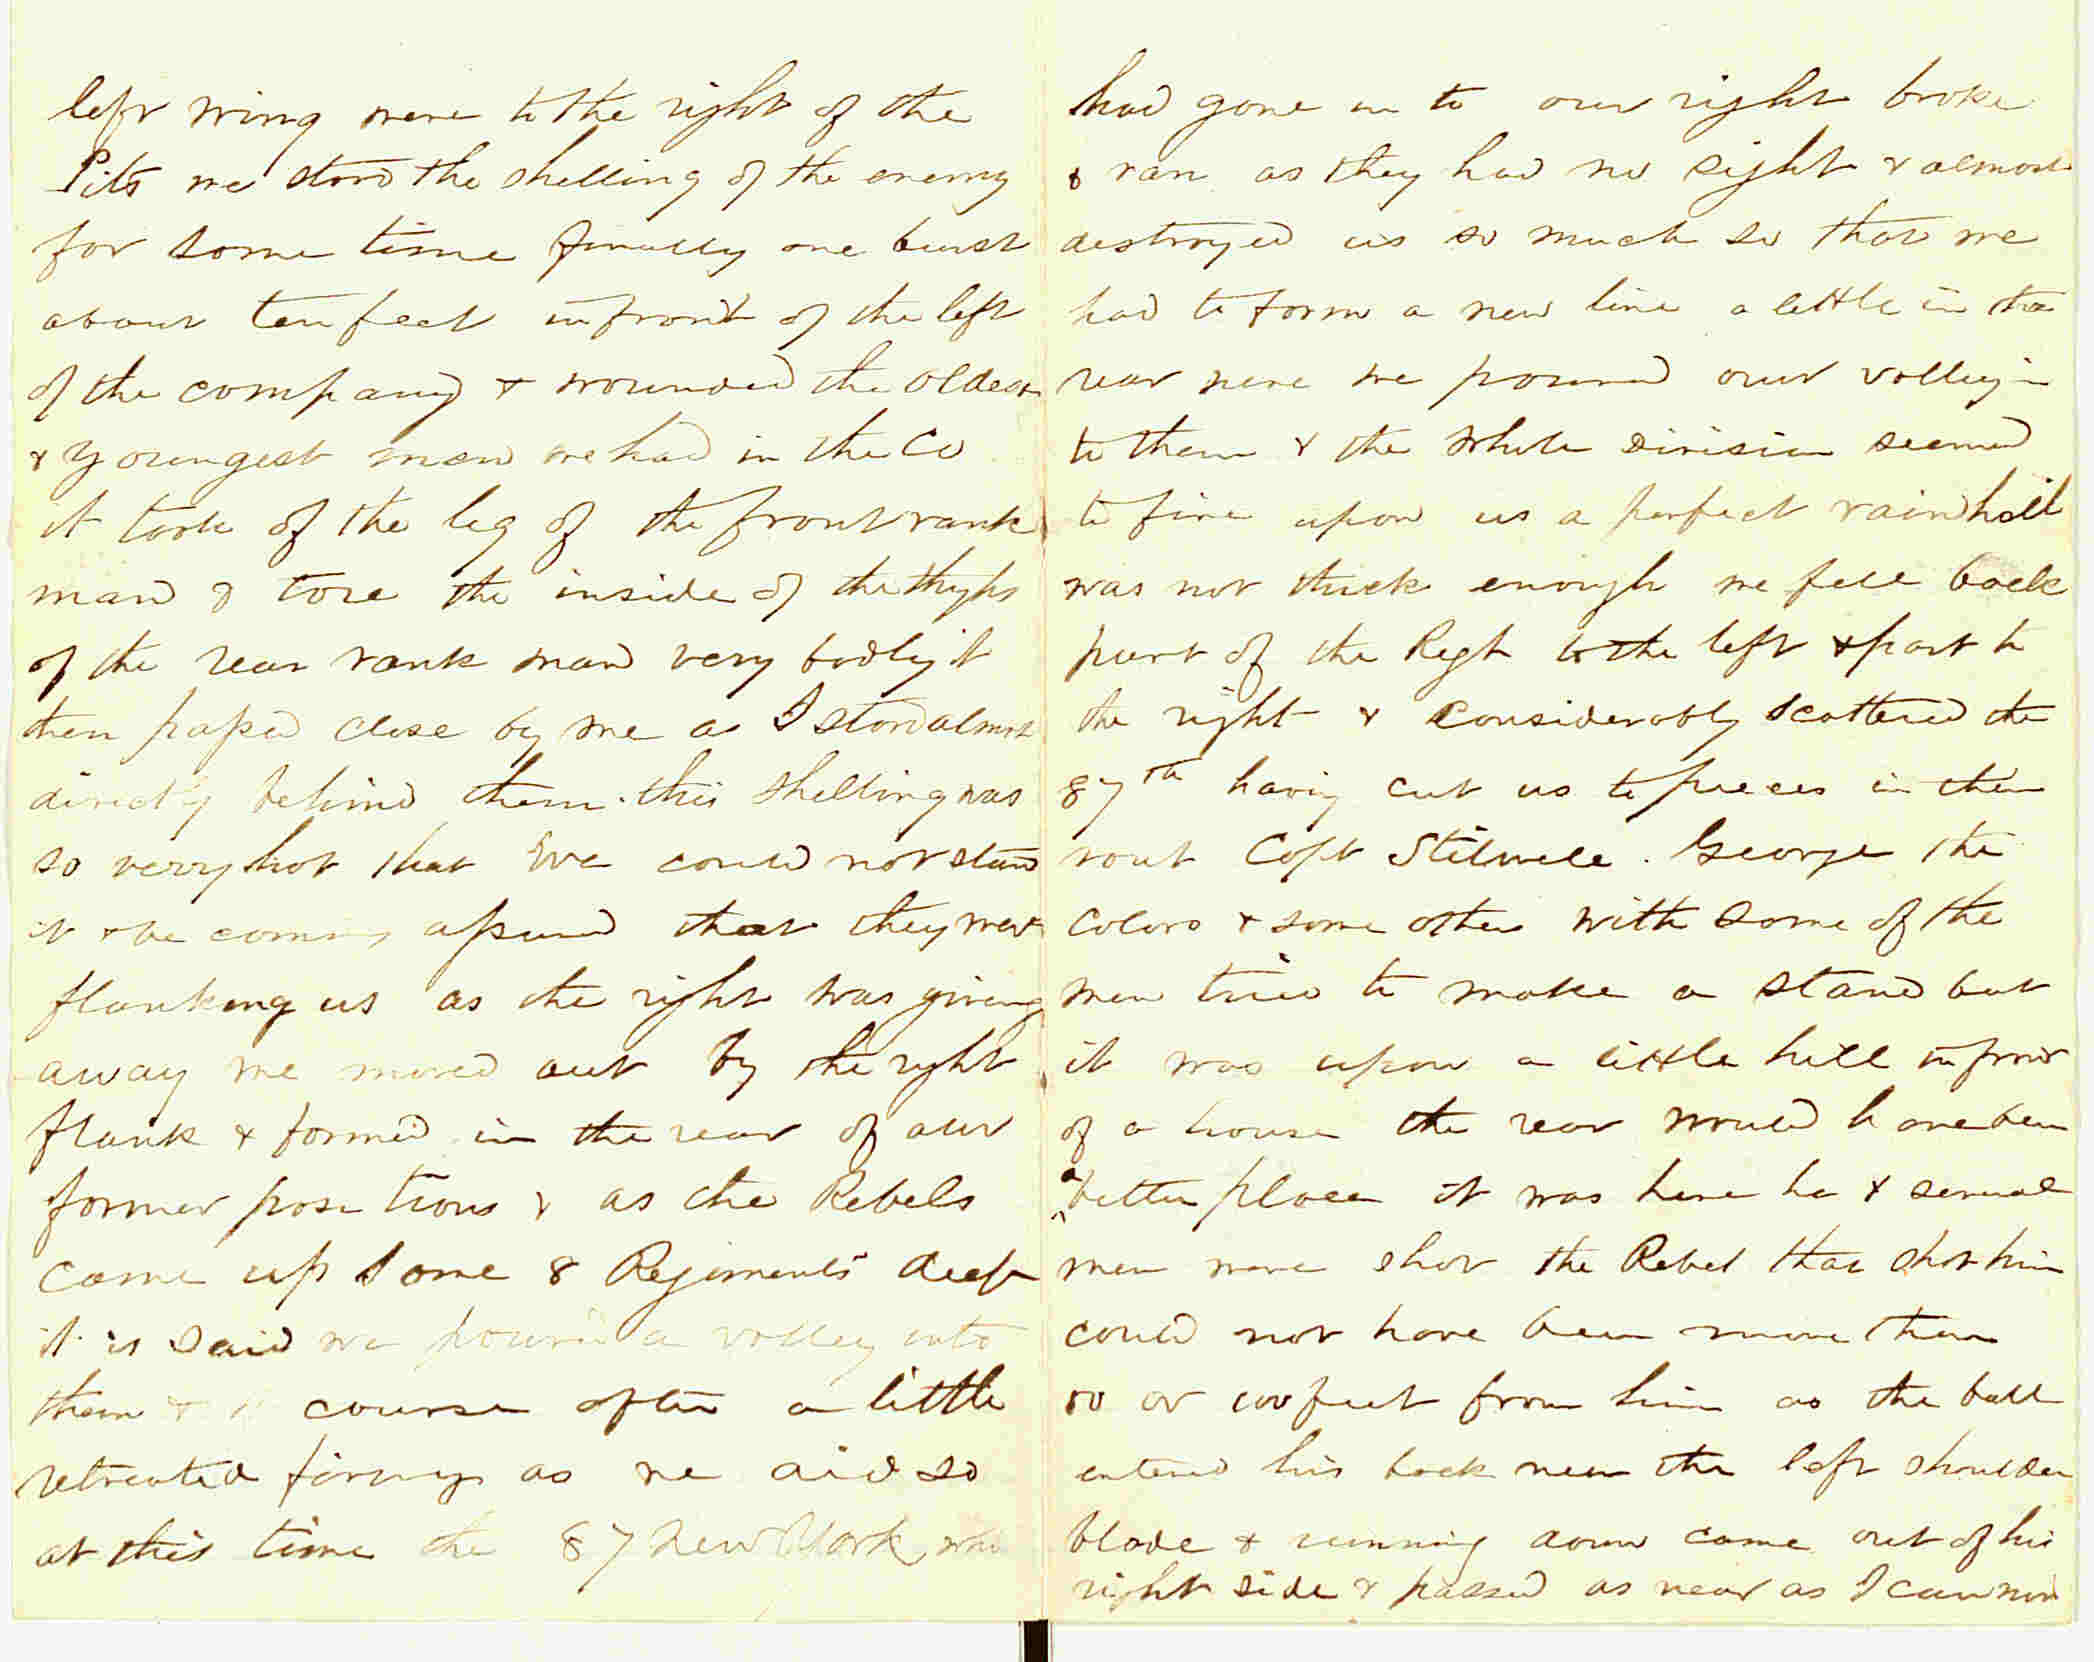 left wing were to the right of the
Pits we stood the shelling of the enemy
for some time finally one burst
about ten feet in front of the left
of the company & wounded the oldest
& youngest man we had in the Co
it took of the leg of the front rank
man & tore the inside of the thighs
of the rear rank man very badly it
then passed close by me as I stood almost
directly behind them. this shelling was
so very hot that we could not stand
it & be coming assured that they were
flanking us as the right was giving
away we moved out by the right
flank & formed in the rear of our
former positions & as the Rebels
came up some 8 Regiments deep
it is said we poured a volley into
them & course after a little
retreated firing as we did so
at this time the 87 New York who
had gone in to our right broke
& ran as they had no right & almost
destroyed us so much so that we
had to form a new line a little in the
rear here we poured our volley in
to them & the whole division seemed
to fire upon us a perfect rain hail
was not thick enough we fell back
part of the Regt to the left & part to
the right & considerably scattered the
87th having cut us to pieces in their
rout Capt Stilwell. George the
colors & some other with some of the
men tried to make a stand but
it was upon a little hill in front
of a house the rear would have been
a better place it was here he & several
men were shot the Rebel that shot him
could not have been more than
50 or 100 feet from him as the ball
entered his back near the left shoulder
blade & running down came out of his
right side & passed as near as I can now